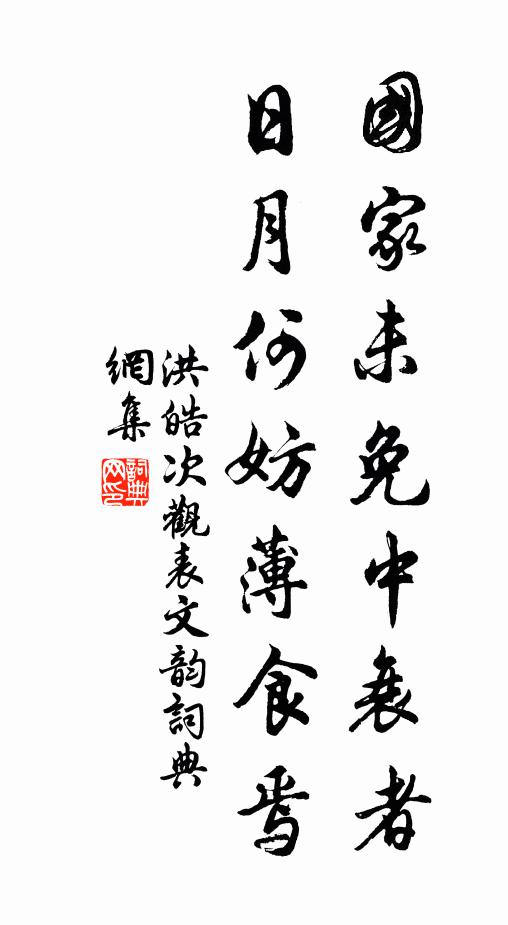 國家未免中衰者
日月何妨薄食焉
洪皓次觀表文韵詞典
網集
詞典
网印